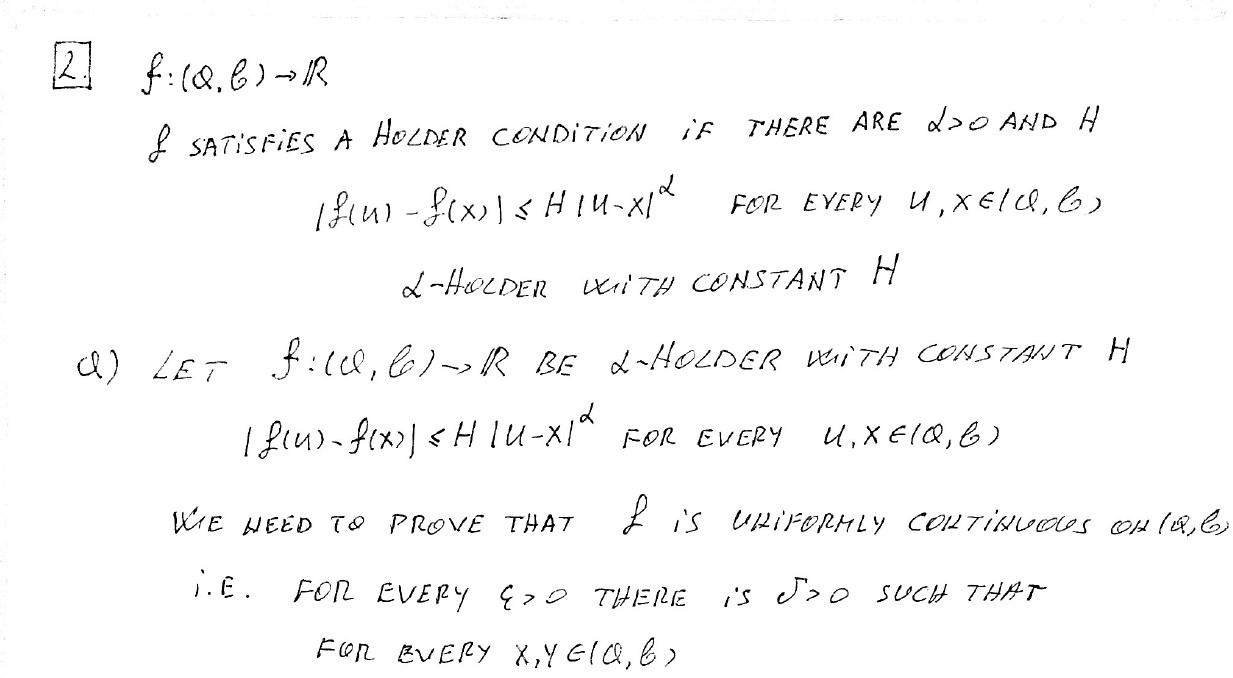 2. f:(a,b)→ℝ
f SATISFIES A HOLDER CONDITION IF THERE ARE α>0 AND H
|f(u)-f(x)| ≤ H|u-x|^α FOR EVERY u,x∈(a,b)
α-HOLDER WITH CONSTANT H
a) LET f:(a,b)→ℝ BE α-HOLDER WITH CONSTANT H
|f(u)-f(x)| ≤ H|u-x|^α FOR EVERY u,x∈(a,b)
WE NEED TO PROVE THAT f IS UNIFORMLY CONTINUOUS ON (a,b)
i.E. FOR EVERY ε>0 THERE IS δ>0 SUCH THAT
FOR EVERY x,y∈(a,b)